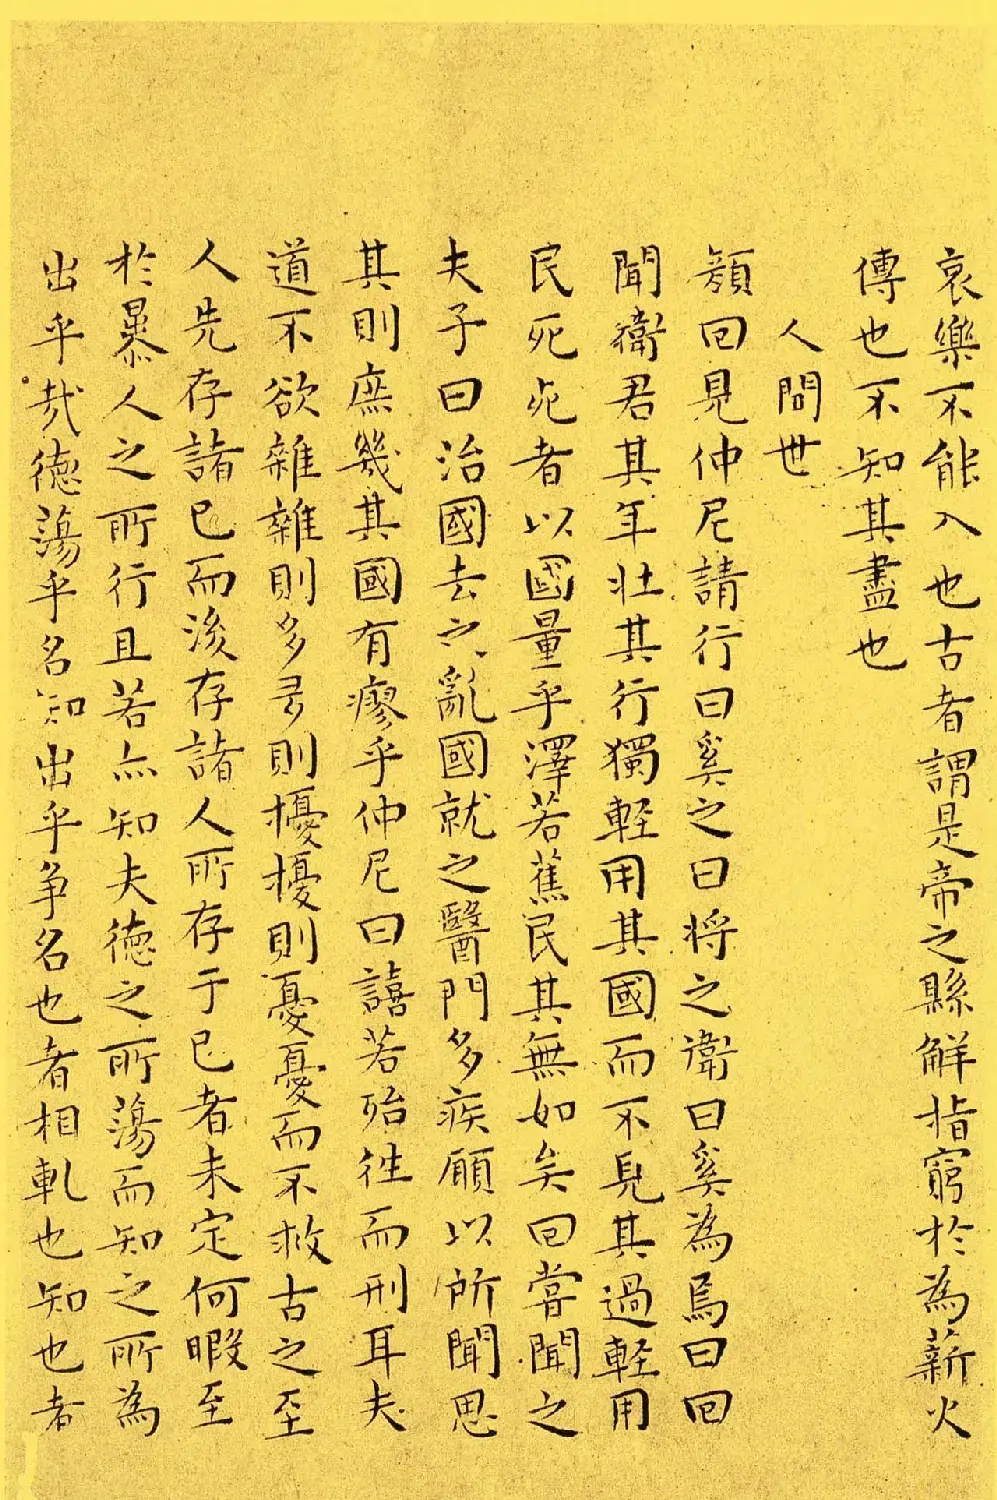 哀樂不能入也古者謂是帝之縣解指窮於為薪火
傳也不知其盡也
人間世
顏回見仲尼請行曰奚之曰将之衛曰奚為焉曰回
聞衛君其年壯其行獨軽用其國而不見其過軽用
民死死者以國量乎澤若蕉民其無如矣回嘗聞之
夫子曰治國去之亂國就之醫門多疾願以所聞思
其則庶幾其國有瘳乎仲尼曰譆若殆往而刑耳夫
道不欲雜雜則多多則擾擾則憂憂而不救古之至
人先存諸已而後存諸人所存于已者未定何暇至
於暴人之所行且若亦知夫徳之所蕩而知之所為
出乎哉徳蕩乎名知出乎争名也者相軋也知也者